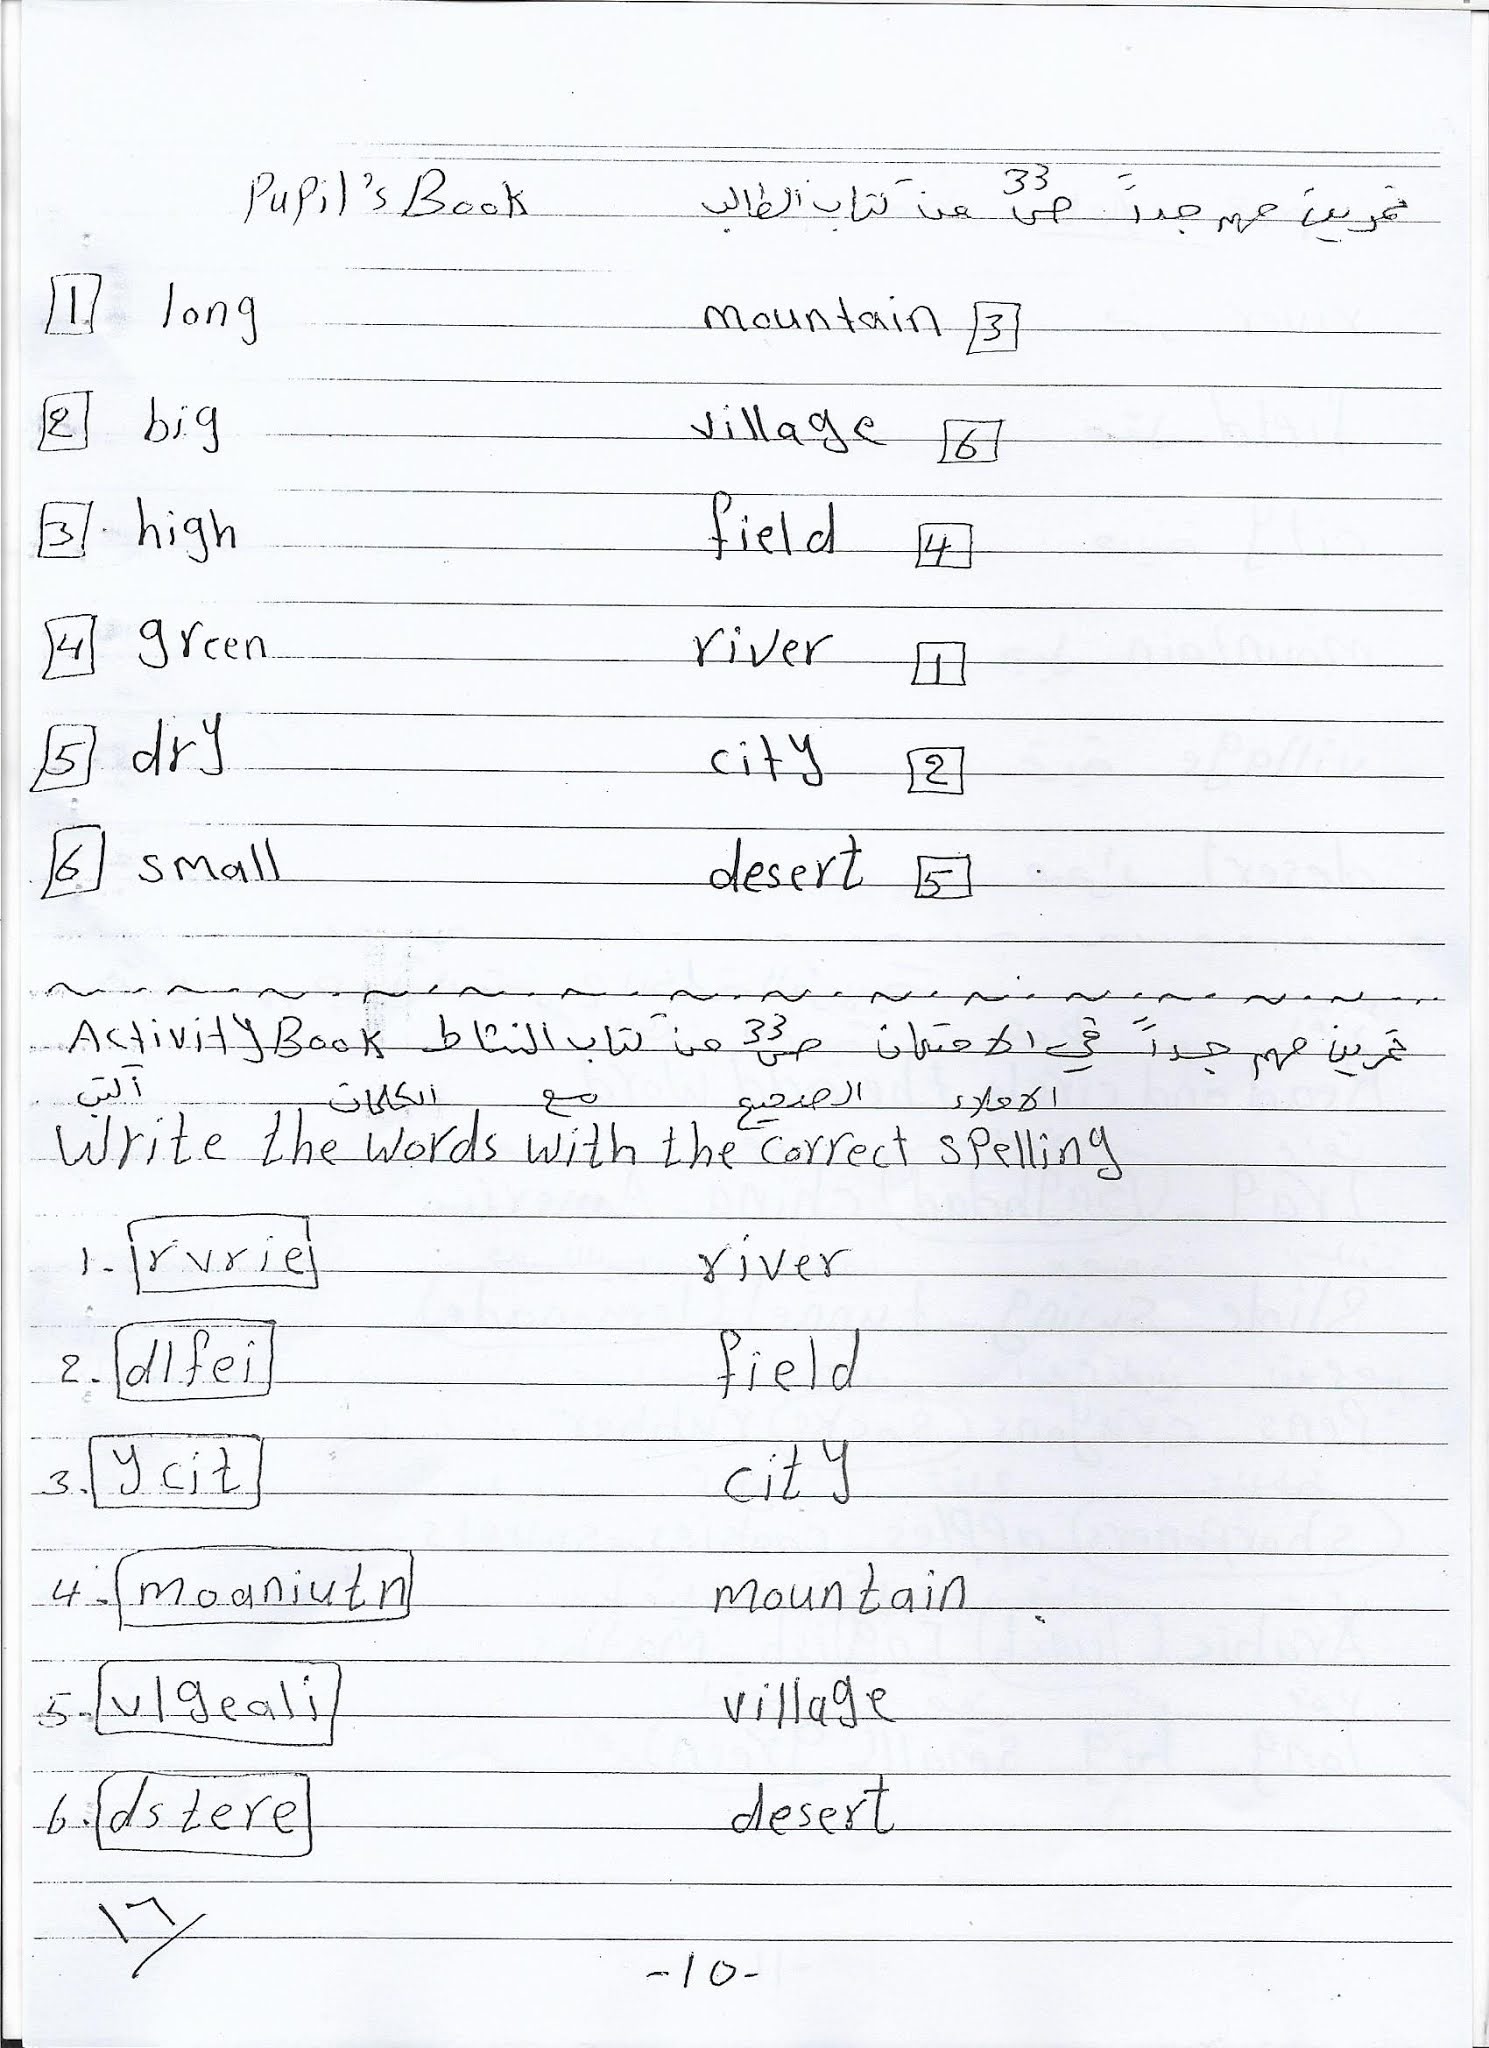 Pupil's Book تمرين مهم جداً ص33 من كتاب الطالب
1 long mountain 3
2 big village 6
3 high field 4
4 green river 1
5 dry city 2
6 small desert 5
تمرين مهم جداً في الامتحان ص33 من كتاب النشاط Activity Book
أكتب الكلمات مع الصحيح الاملاء
Write the words with the correct spelling
1. rvrie river
2. dlfei field
3. ycit city
4. moaniutn mountain
5. vlgeali village
6. dstere desert
١٦/
-10-